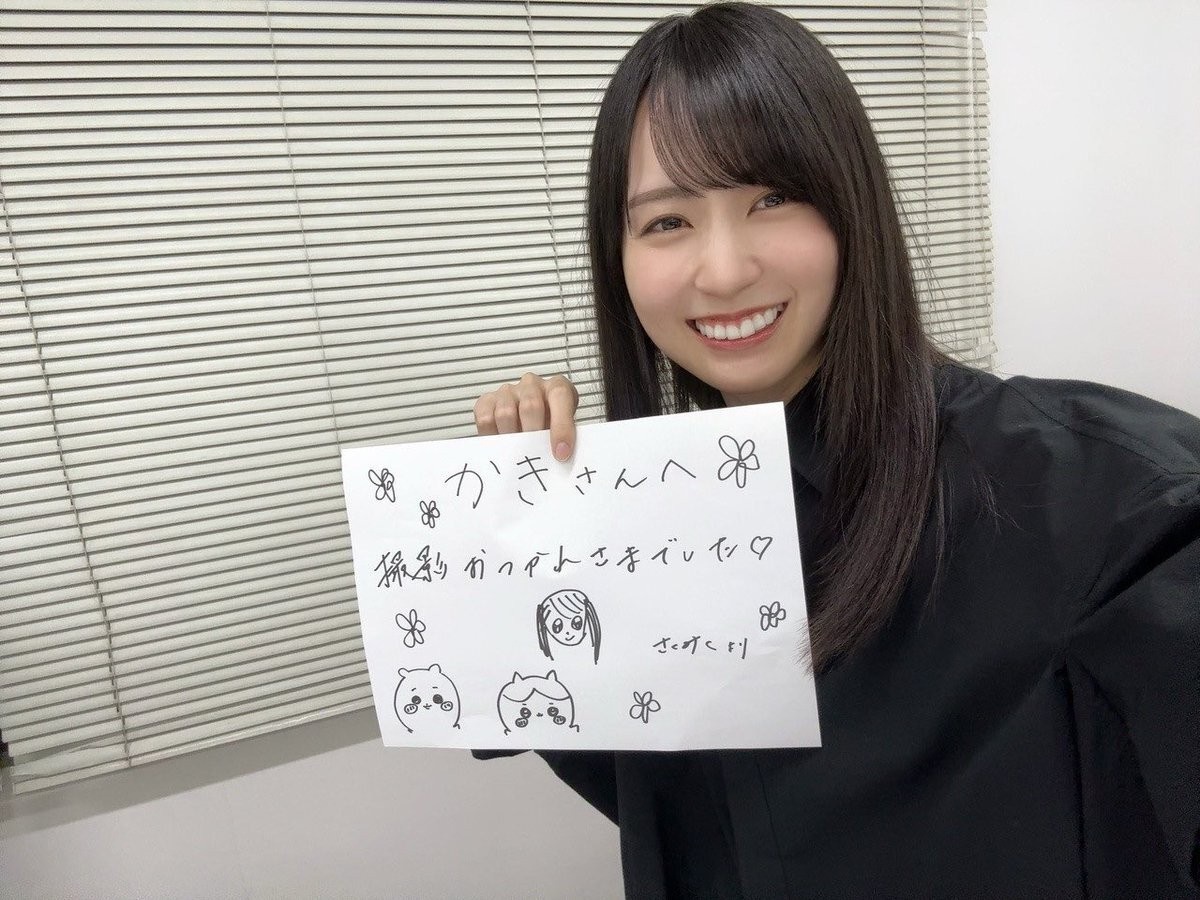 かきさんへ
撮影おつかれさまでした♡
さくみくより